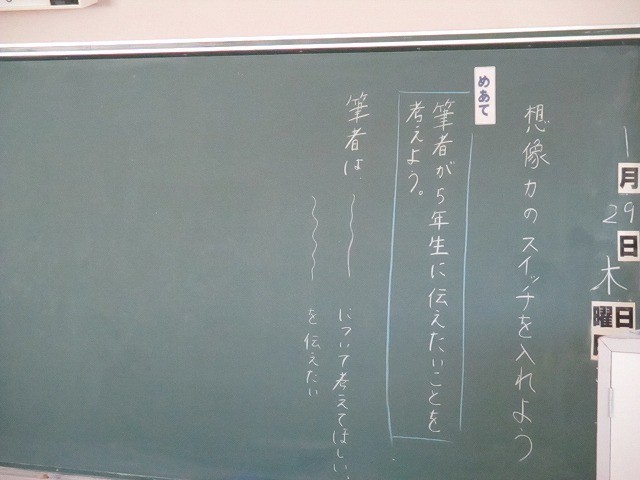 1月29日木曜日
想像力のスイッチを入れよう
めあて
筆者が5年生に伝えたいことを
考えよう。
筆者は、
について考えてほしい。
を伝えたい